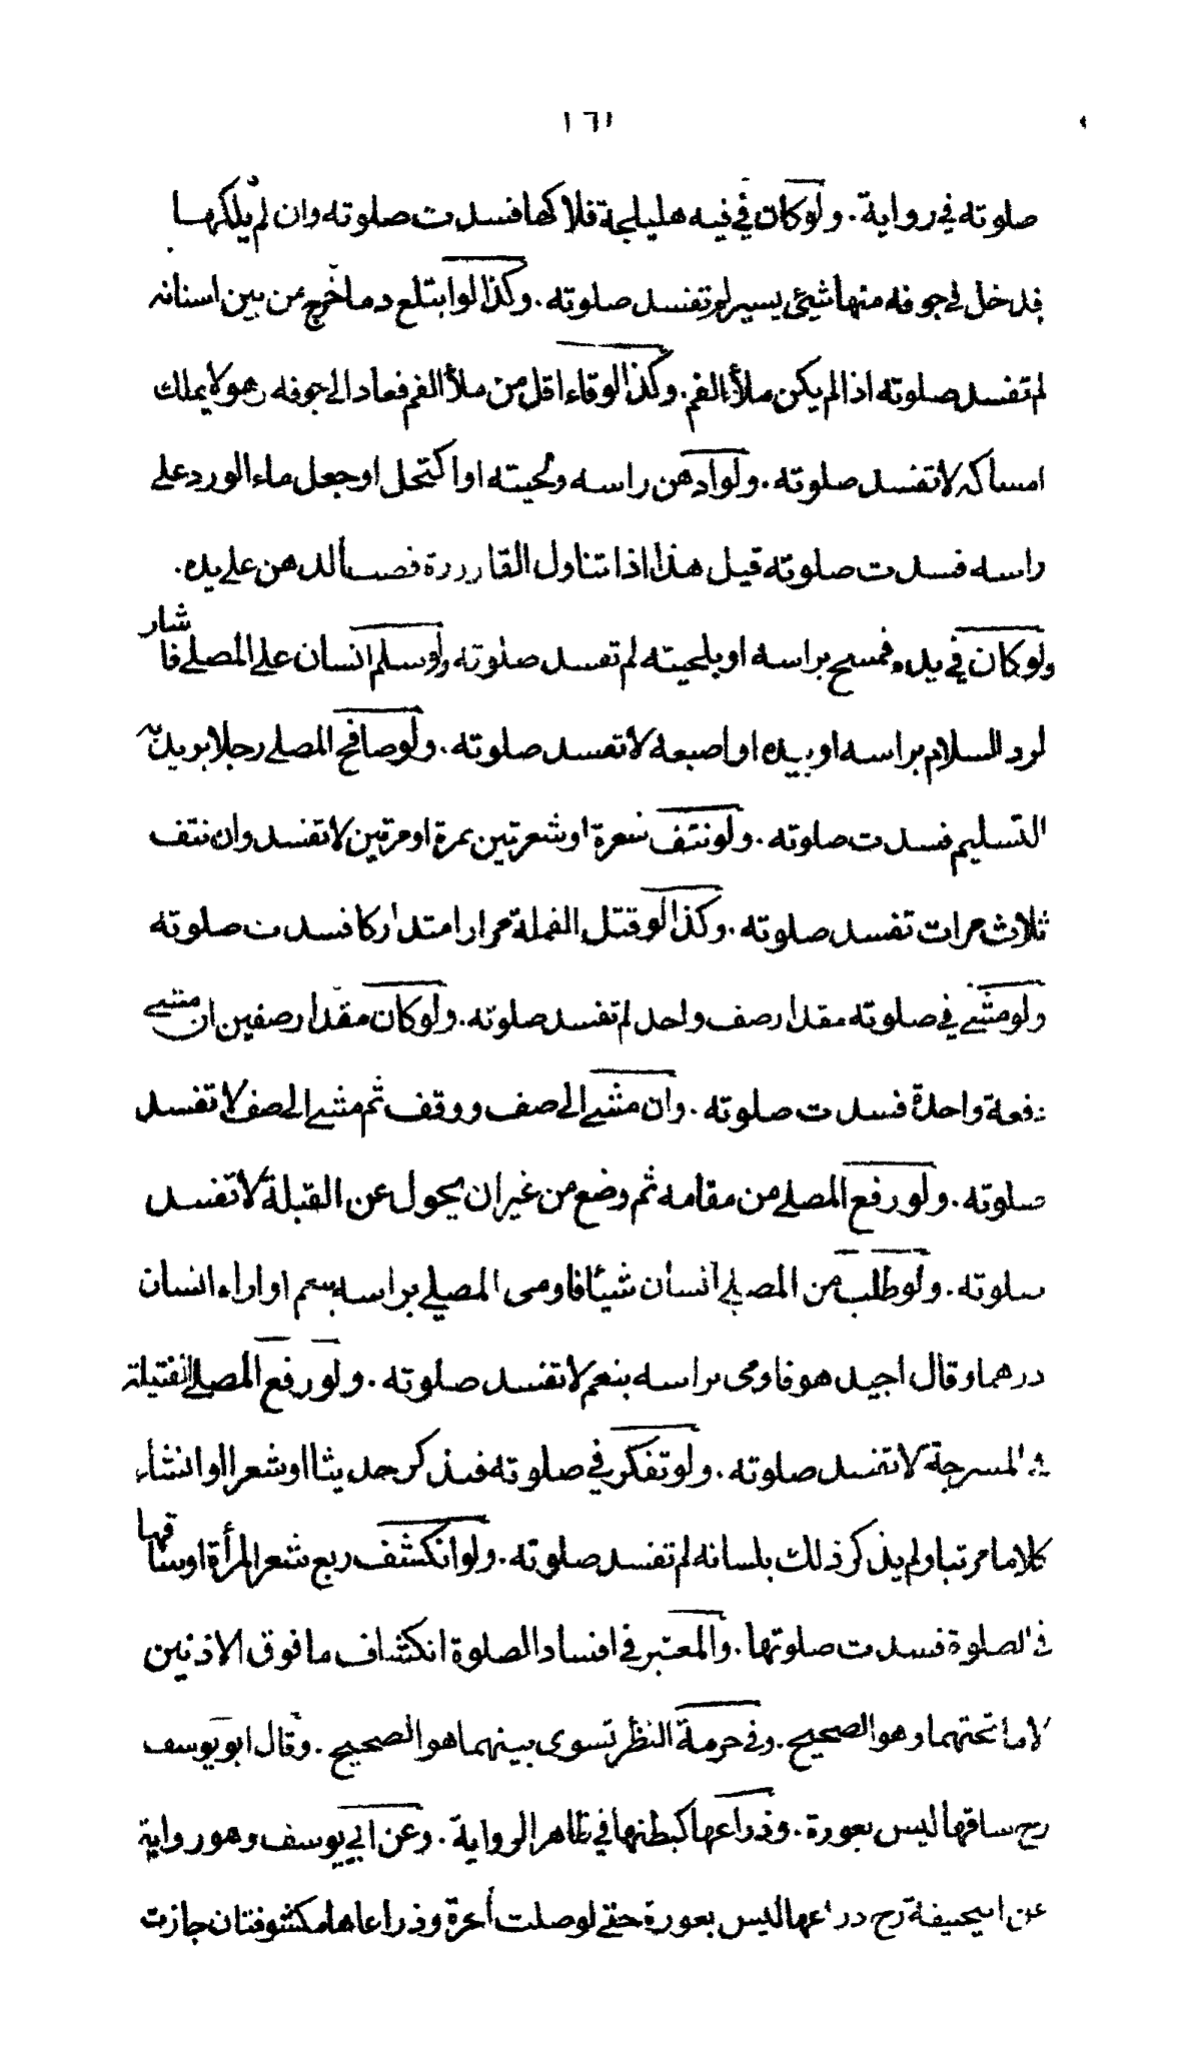 ١٦١
صلوته في رواية . ولو كان في فيه هليلجة فلاكها فسدت صلوته وان لم يلكها
فدخل في جوفه منها شيئ يسير لم تفسد صلوته . وكذا لو ابتلع دما خرج من بين اسنانه
لم تفسد صلوته اذا لم يكن ملأ الفم . وكذا لو قاء اقل من ملأ الفم فعاد الى جوفه وهو لا يملك
امساكه لا تفسد صلوته . ولو ادهن راسه ولحيته او اكتحل او جعل ماء الورد على
راسه فسدت صلوته قيل هذا اذا تناول القارورة فصب الدهن على يده .
ولو كان في يده فمسح براسه او بلحيته لم تفسد صلوته ولو سلم انسان على المصلے فاشار
لرد السلام براسه او بيده او اصبعه لا تفسد صلوته . ولو صافح المصلے رجلا يريد به
التسليم فسدت صلوته . ولو نتف شعرة او شعرتين بمرة او مرتين لا تفسد وان نتف
ثلاث مرات تفسد صلوته . وكذا لو قتل القملة مرارا متداركا فسدت صلوته
ولو مشے في صلوته مقدار صف واحد لم تفسد صلوته . ولو كان مقدار صفين ان مشے
دفعة واحدة فسدت صلوته . وان مشے الى صف ووقف ثم مشے الى صف لا تفسد
صلوته . ولو رفع المصلے من مقامه ثم وضع من غير ان يحول عن القبلة لا تفسد
صلوته . ولو طلب من المصلے انسان شيئا فاومى المصلے براسه بنعم او اراء انسان
درهما وقال اجيد هو فاومى براسه بنعم لا تفسد صلوته . ولو رفع المصلے الفتيلة
في المسرجة لا تفسد صلوته . ولو تفكر في صلوته فتذكر حديثا او شعرا او انشأ
كلاما مرتبا ولم يذكر ذلك بلسانه لم تفسد صلوته . ولو انكشف ربع شعر المرأة او ساقها
في الصلوة فسدت صلوتها . والمعتبر في افساد الصلوة انكشاف ما فوق الاذنين
لا ما تحتهما وهو الصحيح . وفي حرمة النظر تسوى بينهما هو الصحيح . وقال ابو يوسف
رح ساقها ليس بعورة . وذراعها كبطنها في ظاهر الرواية . وعن ابي يوسف وهو رواية
عن ابيحنيفة رح ذراعها ليس بعورة حتے لو صلت حرة وذراعاها مكشوفتان جازت